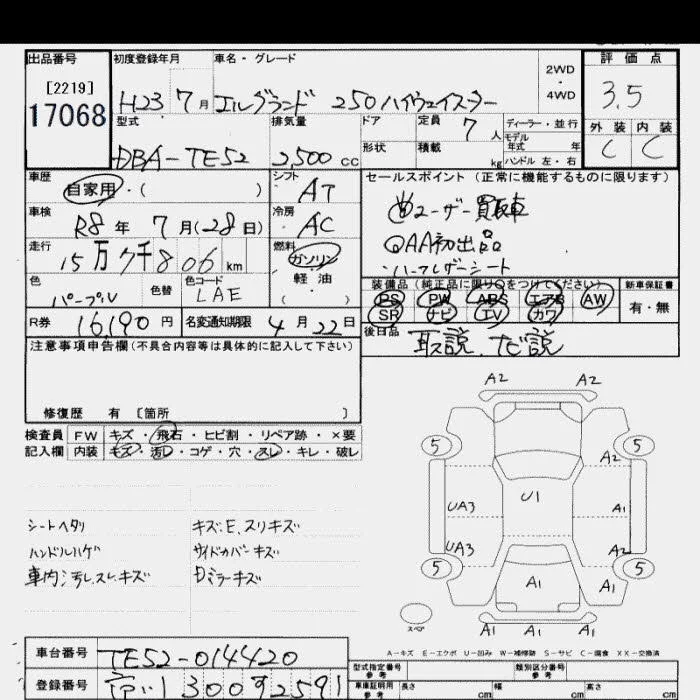 出品番号 初度登録年月 車名・グレード 2WD・4WD 評価点
[2219]
17068 H23 7月 エルグランド 250ハイウェイスター 3.5
型式 排気量 ドア 定員 7人 ディーラー・並行 外装 内装
形状 積載 kg モデル年式 年 C C
DBA-TE52 2,500cc ハンドル 左・右
車歴 自家用・( ) シフト AT セールスポイント (正常に機能するものに限ります)
車検 R8年 7月(28日) 冷房 AC ユーザー買取車
QAA初出品
走行 15万7千806km 燃料 ガソリン ハーフレザーシート
軽油
( )
色 パープル 色替 色コード LAE 装備品(純正品に限り○をつけてください) 新車保証書
PS PW ABS エアB AW 有・無
SR ナビ TV カワ
R券 16,190円 名変通知期限 4月22日 後日品 取説、ナビ説
注意事項申告欄(不具合内容等は具体的に記入して下さい)
修復歴 有 [箇所 ]
検査員 FW キズ・飛石・ヒビ割・リペア跡・×要
記入欄 内装 キズ・汚れ・コゲ・穴・スレ・キレ・破レ
A2 A2
5 5
A2
UA3 U1 A1
UA3 A2
5 5
A1 A1
スペア A1 A1 A1
シートヘタリ キズ:E、スリキズ
ハンドルハゲ サイドカバーキズ
車内汚れスレキズ Dミラーキズ
A-キズ E-エクボ U-凹み W-補修跡 S-サビ C-腐食 XX-交換済
車台番号 TE52-014420 型式指定番号 参考 類別区分番号 参考
登録番号 300 2591 車庫証明用 参考 長さ cm 幅 cm 高さ cm